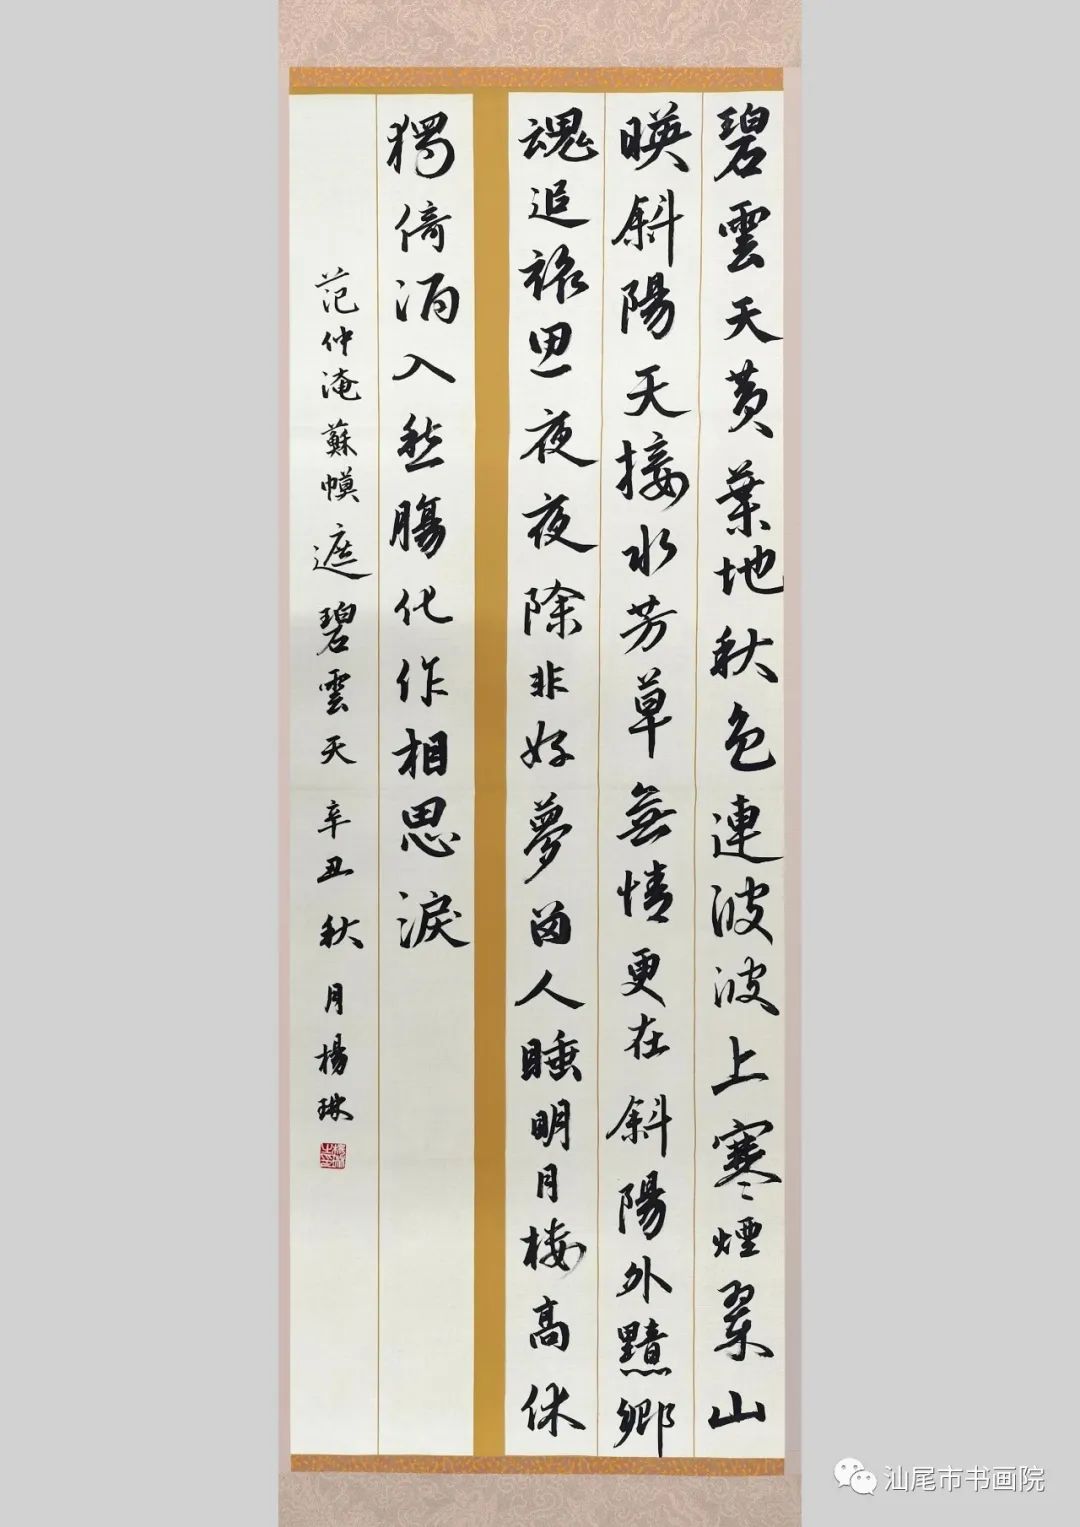 碧雲天黄葉地秋色連波波上寒煙翠山
暎斜陽天接水芳草無情更在斜陽外黯鄉
魂追旅思夜夜除非好夢留人睡明月樓高休
獨倚酒入愁腸化作相思淚
范仲淹蘇幙遮碧雲天 辛丑秋月楊琳
汕尾市书画院